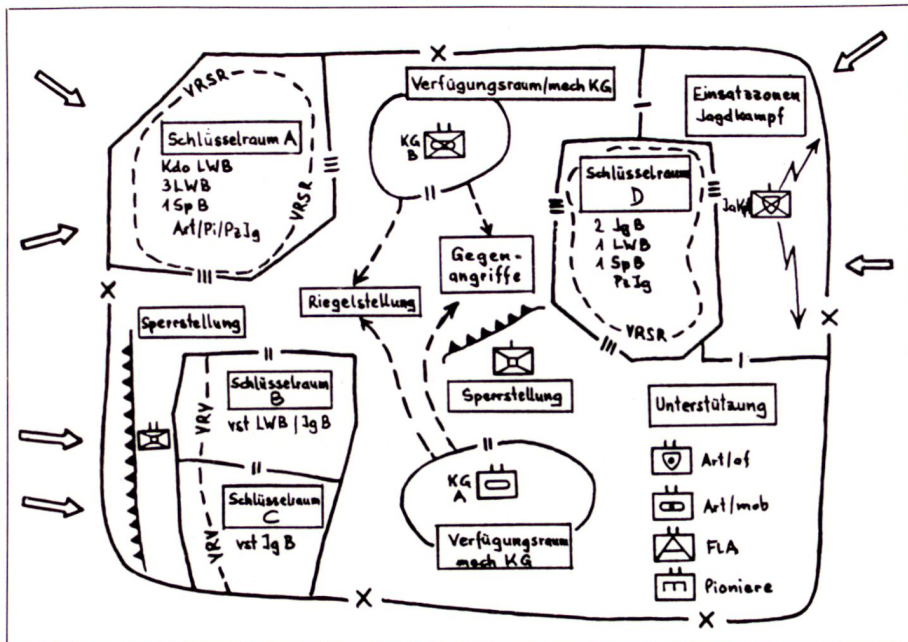 VRSR
Schlüsselraum A
Kdo LWB
3 LWB
1 Sp B
Art/Pi/PzJg
VRSR
Verfügungsraum/mech KG
KG
B
Einsatzzonen
Jagdkampf
JaKpf
Schlüsselraum
D
2 JgB
1 LWB
1 SpB
PzJg
VRSR
Gegen-
angriffe
Riegelstellung
Sperrstellung
Sperrstellung
VRV
Schlüsselraum
B
vst LWB / JgB
VRV
Schlüsselraum
C
vst JgB
KG
A
Verfügungsraum
mech KG
Unterstützung
Art/of
Art/mob
FLA
Pioniere